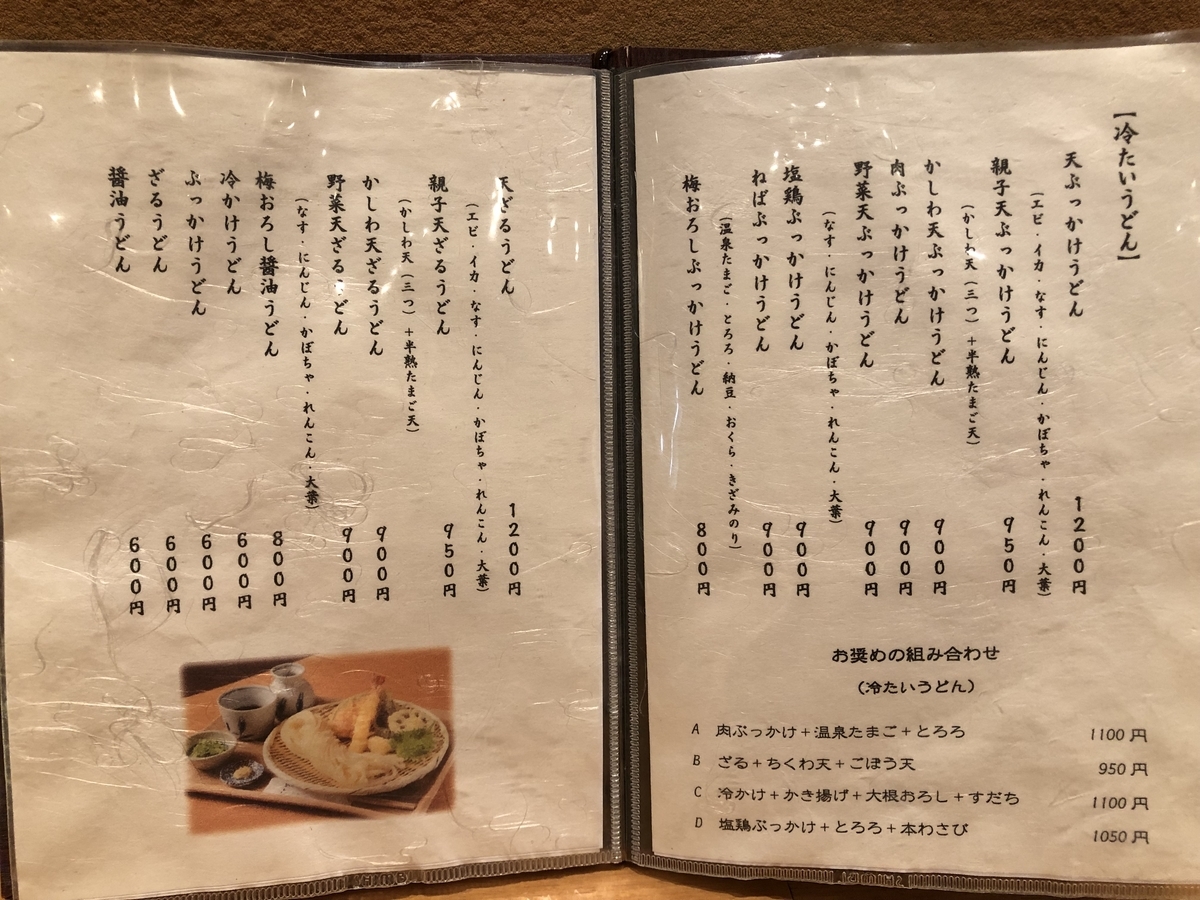 【冷たいうどん】
天ぶっかけうどん 1200円
(エビ・イカ・なす・にんじん・かぼちゃ・れんこん・大葉)
親子天ぶっかけうどん 950円
(かしわ天(三つ)+半熟たまご天)
かしわ天ぶっかけうどん 900円
肉ぶっかけうどん 900円
野菜天ぶっかけうどん 900円
(なす・にんじん・かぼちゃ・れんこん・大葉)
塩鶏ぶっかけうどん 900円
ねばぶっかけうどん 900円
(温泉たまご・とろろ・納豆・おくら・きざみのり)
梅おろしぶっかけうどん 800円
お奨めの組み合わせ
(冷たいうどん)
A 肉ぶっかけ+温泉たまご+とろろ 1100円
B ざる+ちくわ天+ごぼう天 950円
C 冷かけ+かき揚げ+大根おろし+すだち 1100円
D 塩鶏ぶっかけ+とろろ+本わさび 1050円
天ざるうどん 1200円
(エビ・イカ・なす・にんじん・かぼちゃ・れんこん・大葉)
親子天ざるうどん 950円
(かしわ天(三つ)+半熟たまご天)
かしわ天ざるうどん 900円
野菜天ざるうどん 900円
(なす・にんじん・かぼちゃ・れんこん・大葉)
梅おろし醤油うどん 800円
冷かけうどん 600円
ぶっかけうどん 600円
ざるうどん 600円
醤油うどん 600円